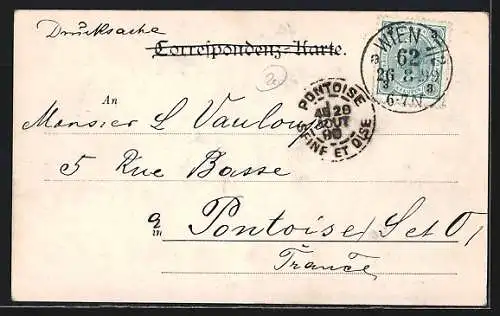 Drucksache
Correspondenz-Karte.
WIEN 1/2
62
26 8 99
6-7.N
3 3
3 3
PONTOISE
29
AOUT
99
SEINE ET OISE
An
Monsieur L Vauloup
5 Rue Basse
à Pontoise (S et O)
in
France